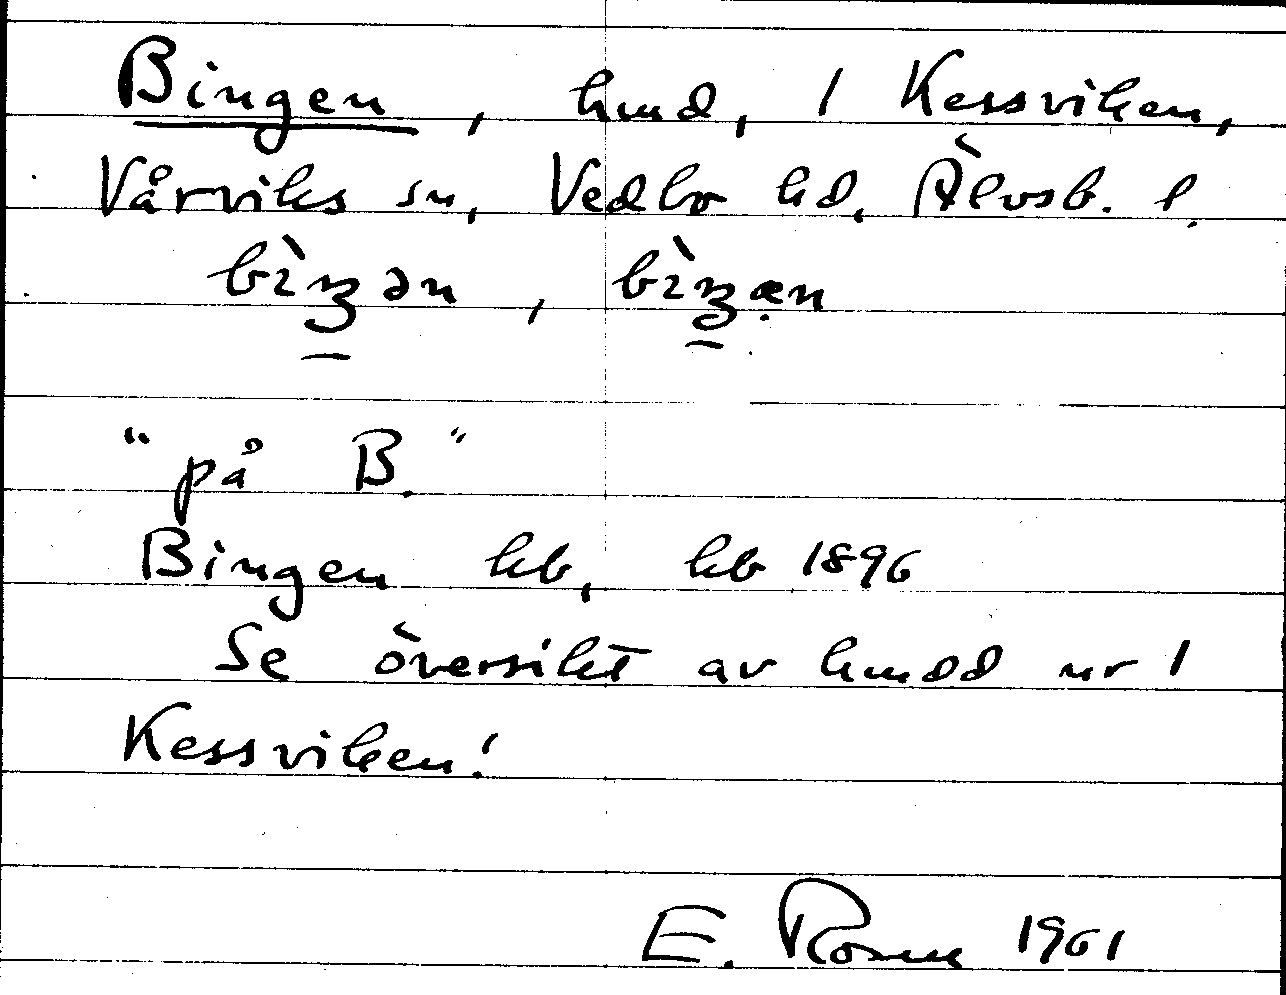 Bingen, hmd, 1 Kessviken,
Vårviks sn, Vedbo hd, Älvsb. l.
bìŋən, bìŋæn
"på B."
Bingen kb, kb 1896
Se översikt av hmdd ur 1
Kessviken!
E. Rosell 1961